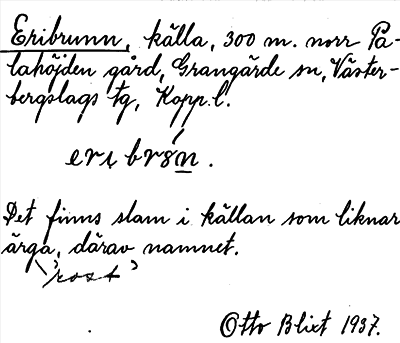 Eribrunn, källa, 300 m. norr Pa-
lahöjden gård, Grangärde sn, Väster-
bergslags tg, Kopp. l.
Det finns slam i källan som liknar
ärga, därav namnet.
'rost'
Otto Blixt 1937.